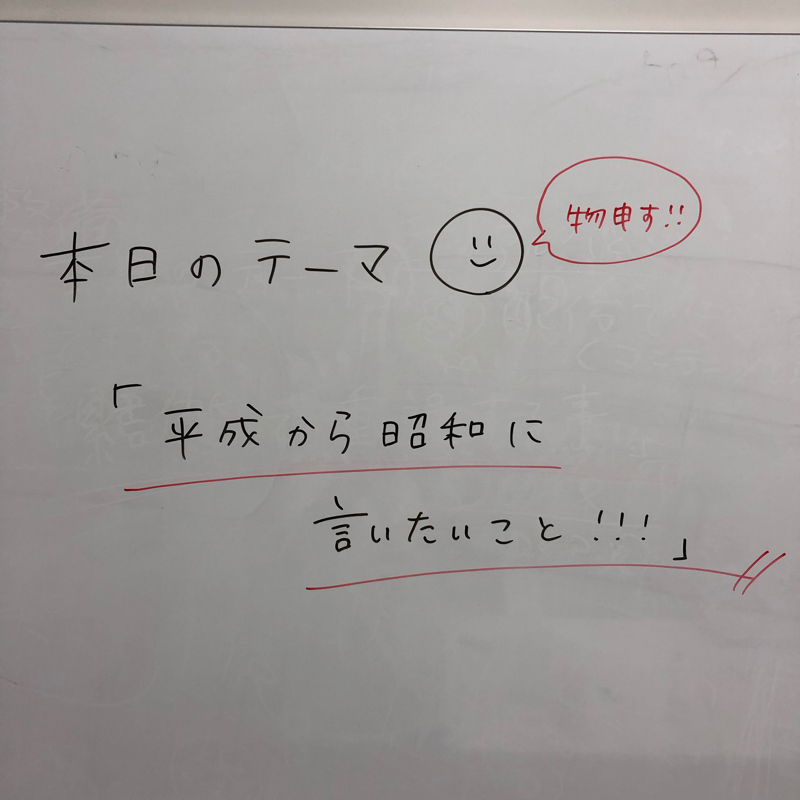 本日のテーマ
物申す!!
「平成から昭和に
言いたいこと!!!」